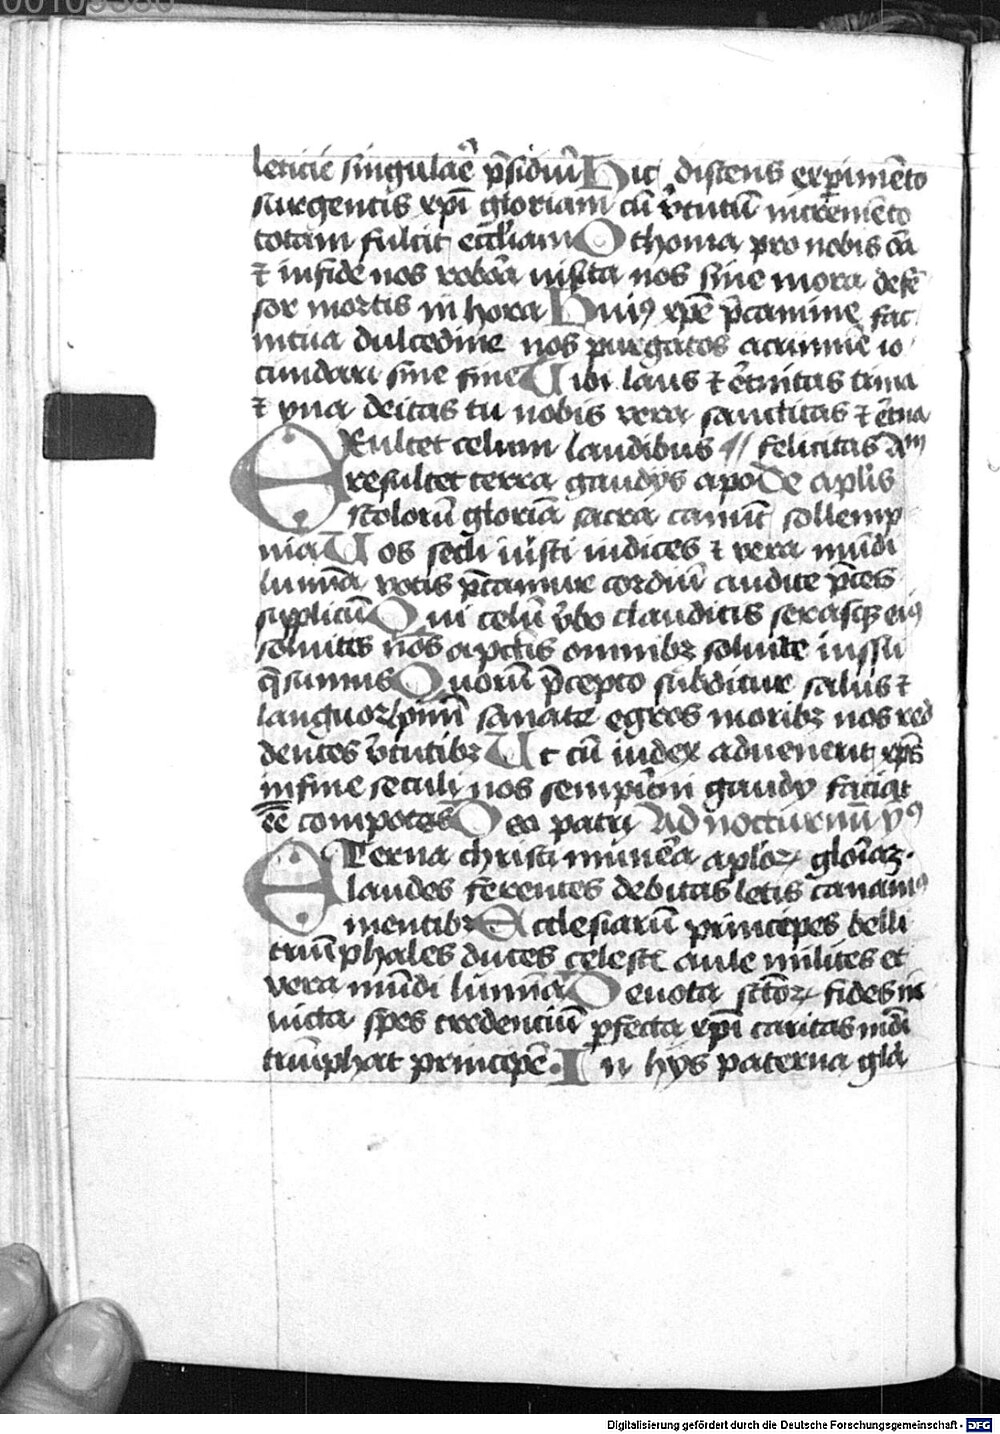 leticie singulaē p̄sidiū Hic discens exp̲imēto
surgentis xp̄i gloriam cū v̓tutū incremēto
totam fulcit eccl̄iam O thoma pro nobis oā
⁊ in fide nos robōa visita nos sine mora defē
sor mortis in hora Huiꝰ xp̄e p̄camine fac
in tua dulcedine nos purgatos a crimine io
cundari sine fine Tibi laus ⁊ et̓nitas trina
⁊ vna deitas tu nobis vera sanctitas ⁊ et̓na
EXultet celum laudibus // felicitas Am̄
resultet terra gaudijs apo De apl̄is
stolorū gloriā sacra canūt sollemp
nia Uos secli iusti iudices ⁊ vera mūdi
lumīa votis p̄camur cordiū audite p̄ces
supplicū Qui celū v̓bo clauditis serasqꝫ eiꝰ
soluitis nos a pctīs omnibꝫ soluite iussu
q̄sumus Quorū p̄cepto subditur salus ⁊
languor om̄iū sanate egros moribꝫ nos red
dentes v̓tutibꝫ Ut cū iudex aduenerit xp̄s
in fine seculi nos sempit̓ni gaudij faciat
eē compotes Deo patri Ad nocturnū ym̄ꝰ
ETerna christi munēa aploꝝ gloīaꝫ
laudes ferentes debitas letis canamꝰ
mentibꝫ Ecclesiarū principes belli
triūphales duces celestē aule milites et
vera mūdi lumīa Deuota sctōꝝ fides in
uicta spes credenciū p̲fecta xp̄i caritas mūdi
triūphat principē. In hijs paterna glā
Digitalisierung gefördert durch die Deutsche Forschungsgemeinschaft - DFG